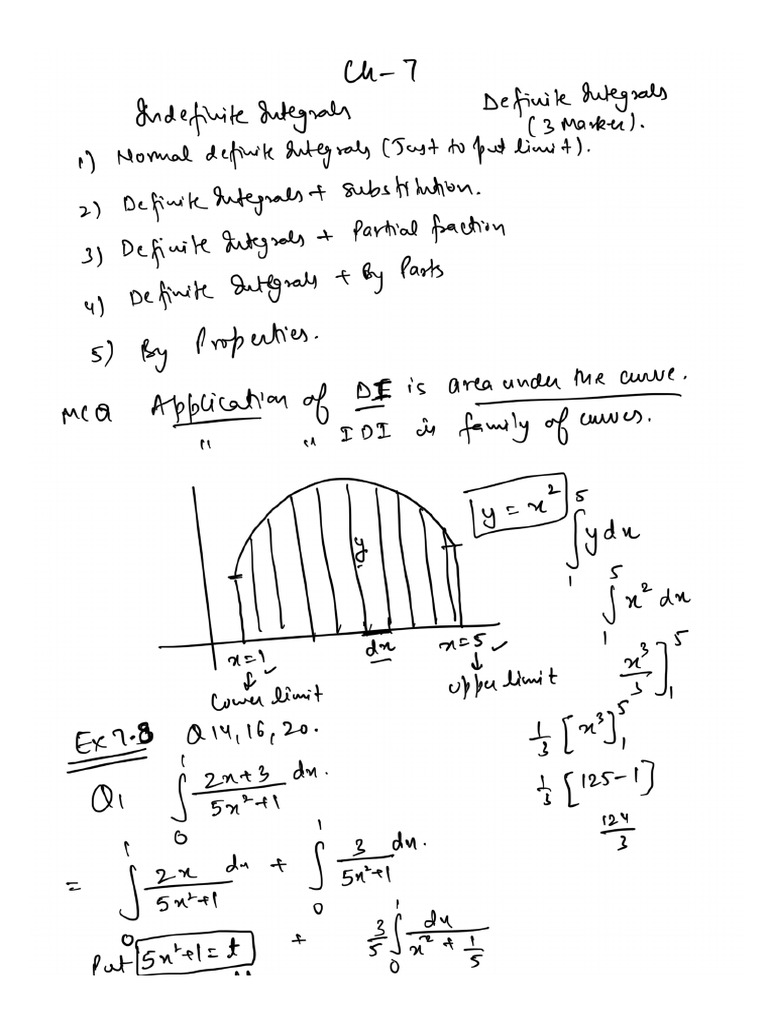 Ch-7
Indefinite Integrals Definite Integrals
(3 Marker).
1) Normal definite Integrals (Just to put limit).
2) Definite Integrals + Substitution.
3) Definite Integrals + Partial fraction
4) Definite Integrals + By Parts
5) By Properties.
MCQ Application of DI is area under the curve.
" " IDI is family of curves.
y = x²
∫₁⁵ y dx
y
∫₁⁵ x² dx
x=1 ✓ dx x=5 ✓
x³/3 ]₁⁵
↓ ↓
Lower limit upper limit
1/3 [x³]₁⁵
Ex 7.8 Q 14, 16, 20.
1/3 [125-1]
Q1 ∫₀¹ (2x+3)/(5x²+1) dx.
124/3
= ∫₀¹ 2x/(5x²+1) dx + ∫₀¹ 3/(5x²+1) dx.
Put 5x²+1 = t + 3/5 ∫₀¹ dx/(x² + 1/5)